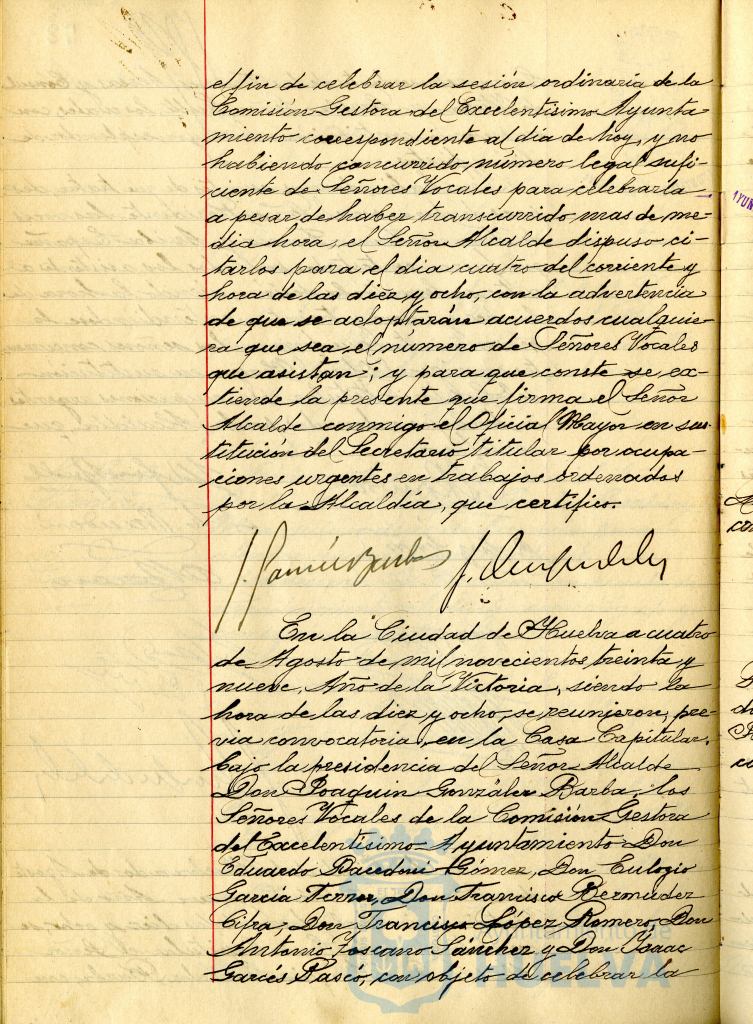 el fin de celebrar la sesión ordinaria de la
Comisión Gestora del Excelentísimo Ayunta-
miento correspondiente al día de hoy, y no
habiendo concurrido número legal sufi-
ciente de Señores Vocales para celebrarla
a pesar de haber transcurrido mas de me-
dia hora, el Señor Alcalde dispuso ci-
tarlos para el día cuatro del corriente y
hora de las diez y ocho, con la advertencia
de que se adoptarán acuerdos cualquie-
ra que sea el número de Señores Vocales
que asistan; y para que conste se ex-
tiende la presente que firma el Señor
Alcalde conmigo el Oficial Mayor en sus-
titución del Secretario titular por ocupa-
ciones urgentes en trabajos ordenados
por la Alcaldía, que certifico.
En la Ciudad de Huelva a cuatro
de Agosto de mil novecientos treinta y
nueve, Año de la Victoria, siendo la
hora de las diez y ocho, se reunieron, pre-
via convocatoria, en la Casa Capitular,
bajo la presidencia del Señor Alcalde
Don Joaquín González Barba, los
Señores Vocales de la Comisión Gestora
del Excelentísimo Ayuntamiento Don
Eduardo Gómez, Don Eulogio
García Don Francisco Bermudez
Cifra, Don Francisco López Romero, Don
Antonio Toscano Sánchez y Don Isaac
Garcés Pascó, con objeto de celebrar la
HUELVA